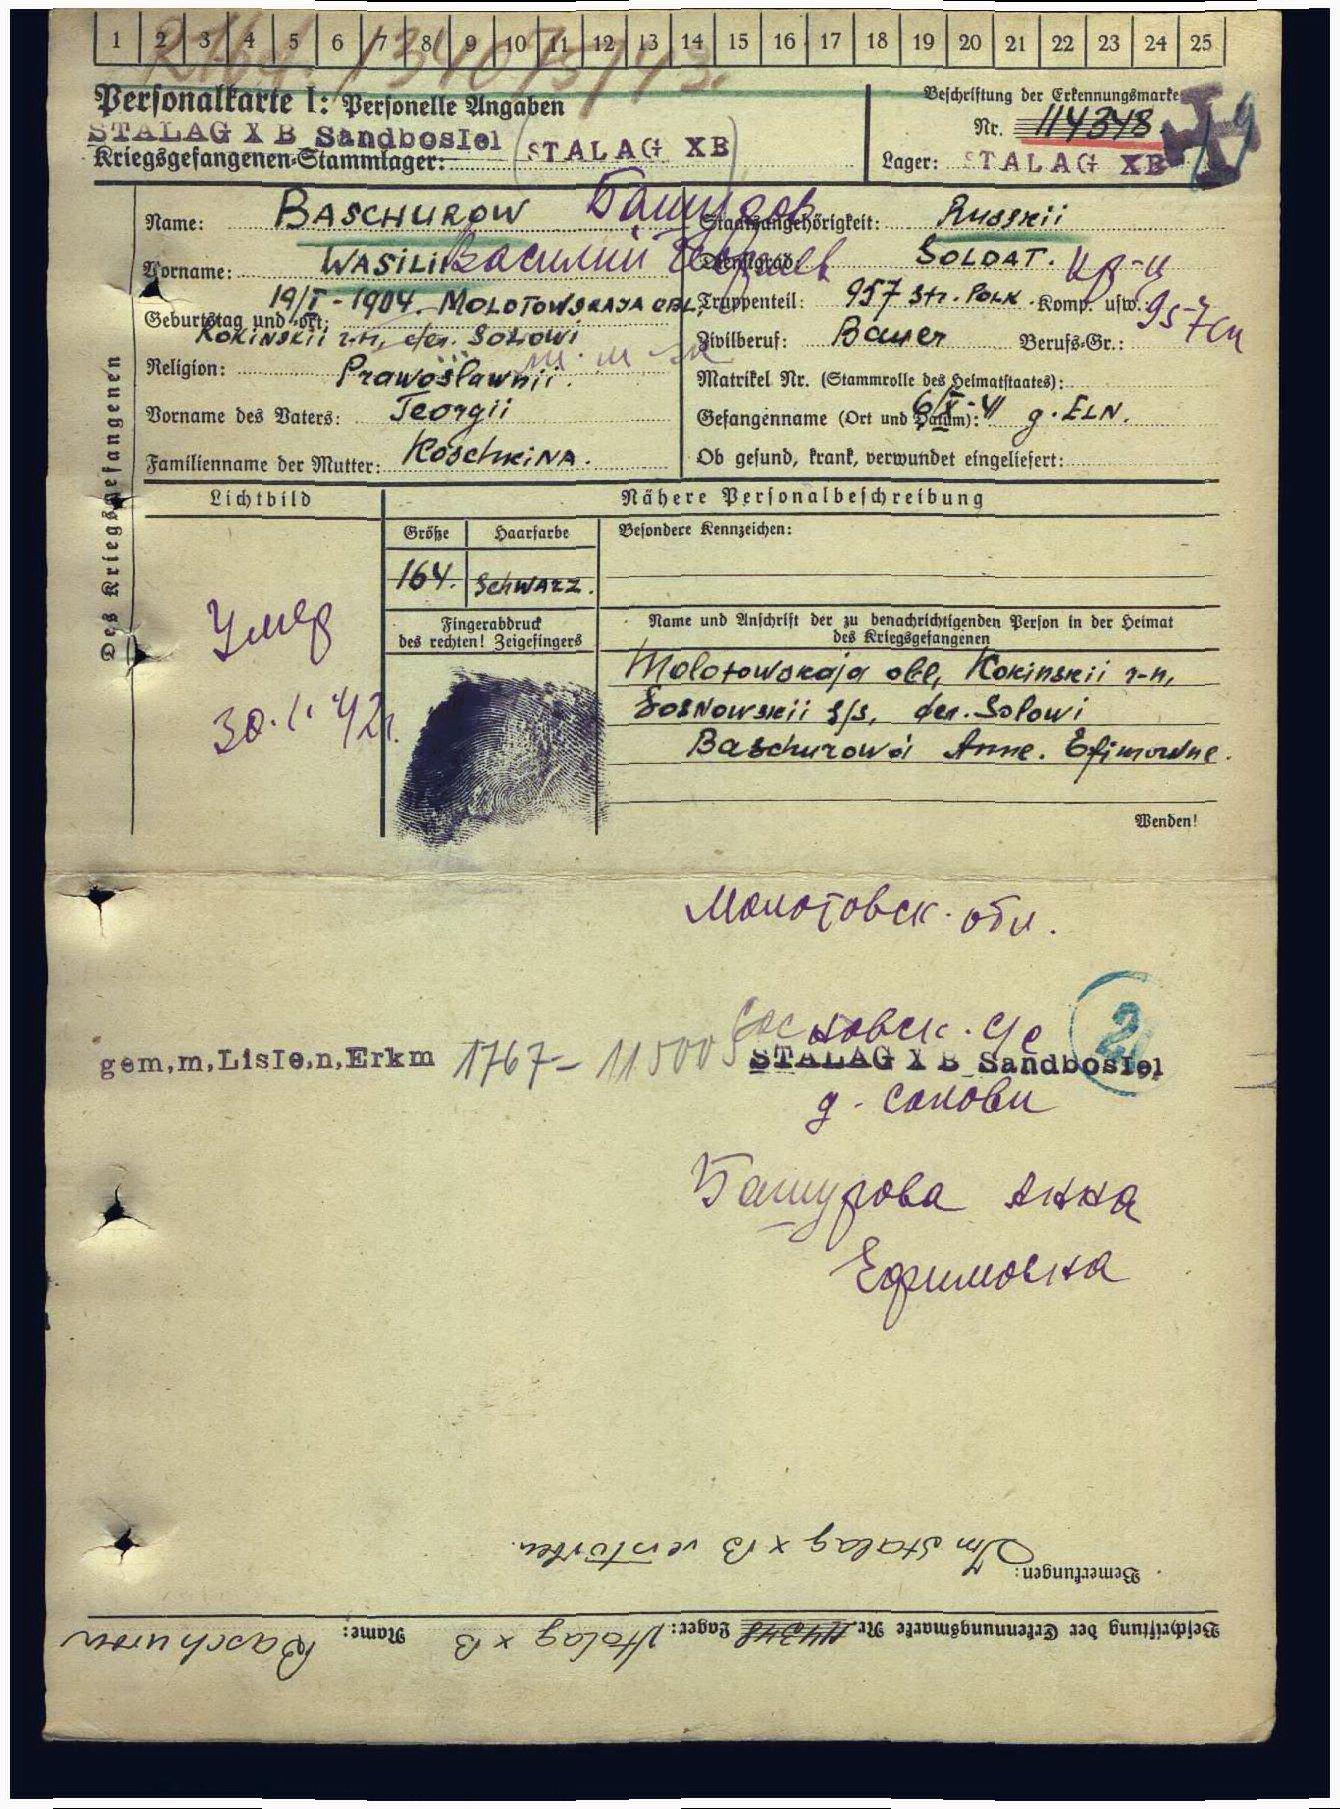 1 2 3 4 5 6 7 8 9 10 11 12 13 14 15 16 17 18 19 20 21 22 23 24 25
Personalkarte I: Personelle Angaben
STALAG X B Sandbostel
Kriegsgefangenen-Stammlager: STALAG XB
Beschriftung der Erkennungsmarke
Nr. 114348.
Lager: STALAG XB
Des Kriegsgefangenen
Name: BASCHUROW Башуров
Vorname: WASILII Василий
Geburtstag und -ort: 19/I - 1904. MOLOTOWSKAJA OBL,
KOKINSKII r-n, der. SOLOWI
Religion: Prawoslawnii.
Vorname des Vaters: Georgii
Familienname der Mutter: KoschKiNA.
Staatsangehörigkeit: Russkii
Dienstgrad: SOLDAT. кр-ц
Truppenteil: 957 Str. POLK. Komp. usw.: 957 сп
Zivilberuf: Bauer Berufs-Gr.:
Matrikel Nr. (Stammrolle des Heimatstaates):
Gefangenname (Ort und Datum): 6/X-41 g. ELN.
Ob gesund, krank, verwundet eingeliefert:
Lichtbild
Nähere Personalbeschreibung
Größe Haarfarbe Besondere Kennzeichen:
164. schwarz.
Fingerabdruck
des rechten! Zeigefingers
Name und Anschrift der zu benachrichtigenden Person in der Heimat
des Kriegsgefangenen
Molotowskaja obl, Kokinskii r-n,
Sosnowskii s/s, der. Solowi
Baschurowa Anne. Efimowne.
Умер
30.1.42г.
Wenden!
Молотовск. обл.
Сосновск. с/с
gem,m,Liste,n,Erkm 1767- 11500 STALAG X B Sandbostel
2
д. Солови
Башурова Анна
Ефимовна
Bemerkungen: Im Stalag X B verstorben.
Beschriftung der Erkennungsmarke Nr. 114348 Lager: Stalag X B Name: Baschurow